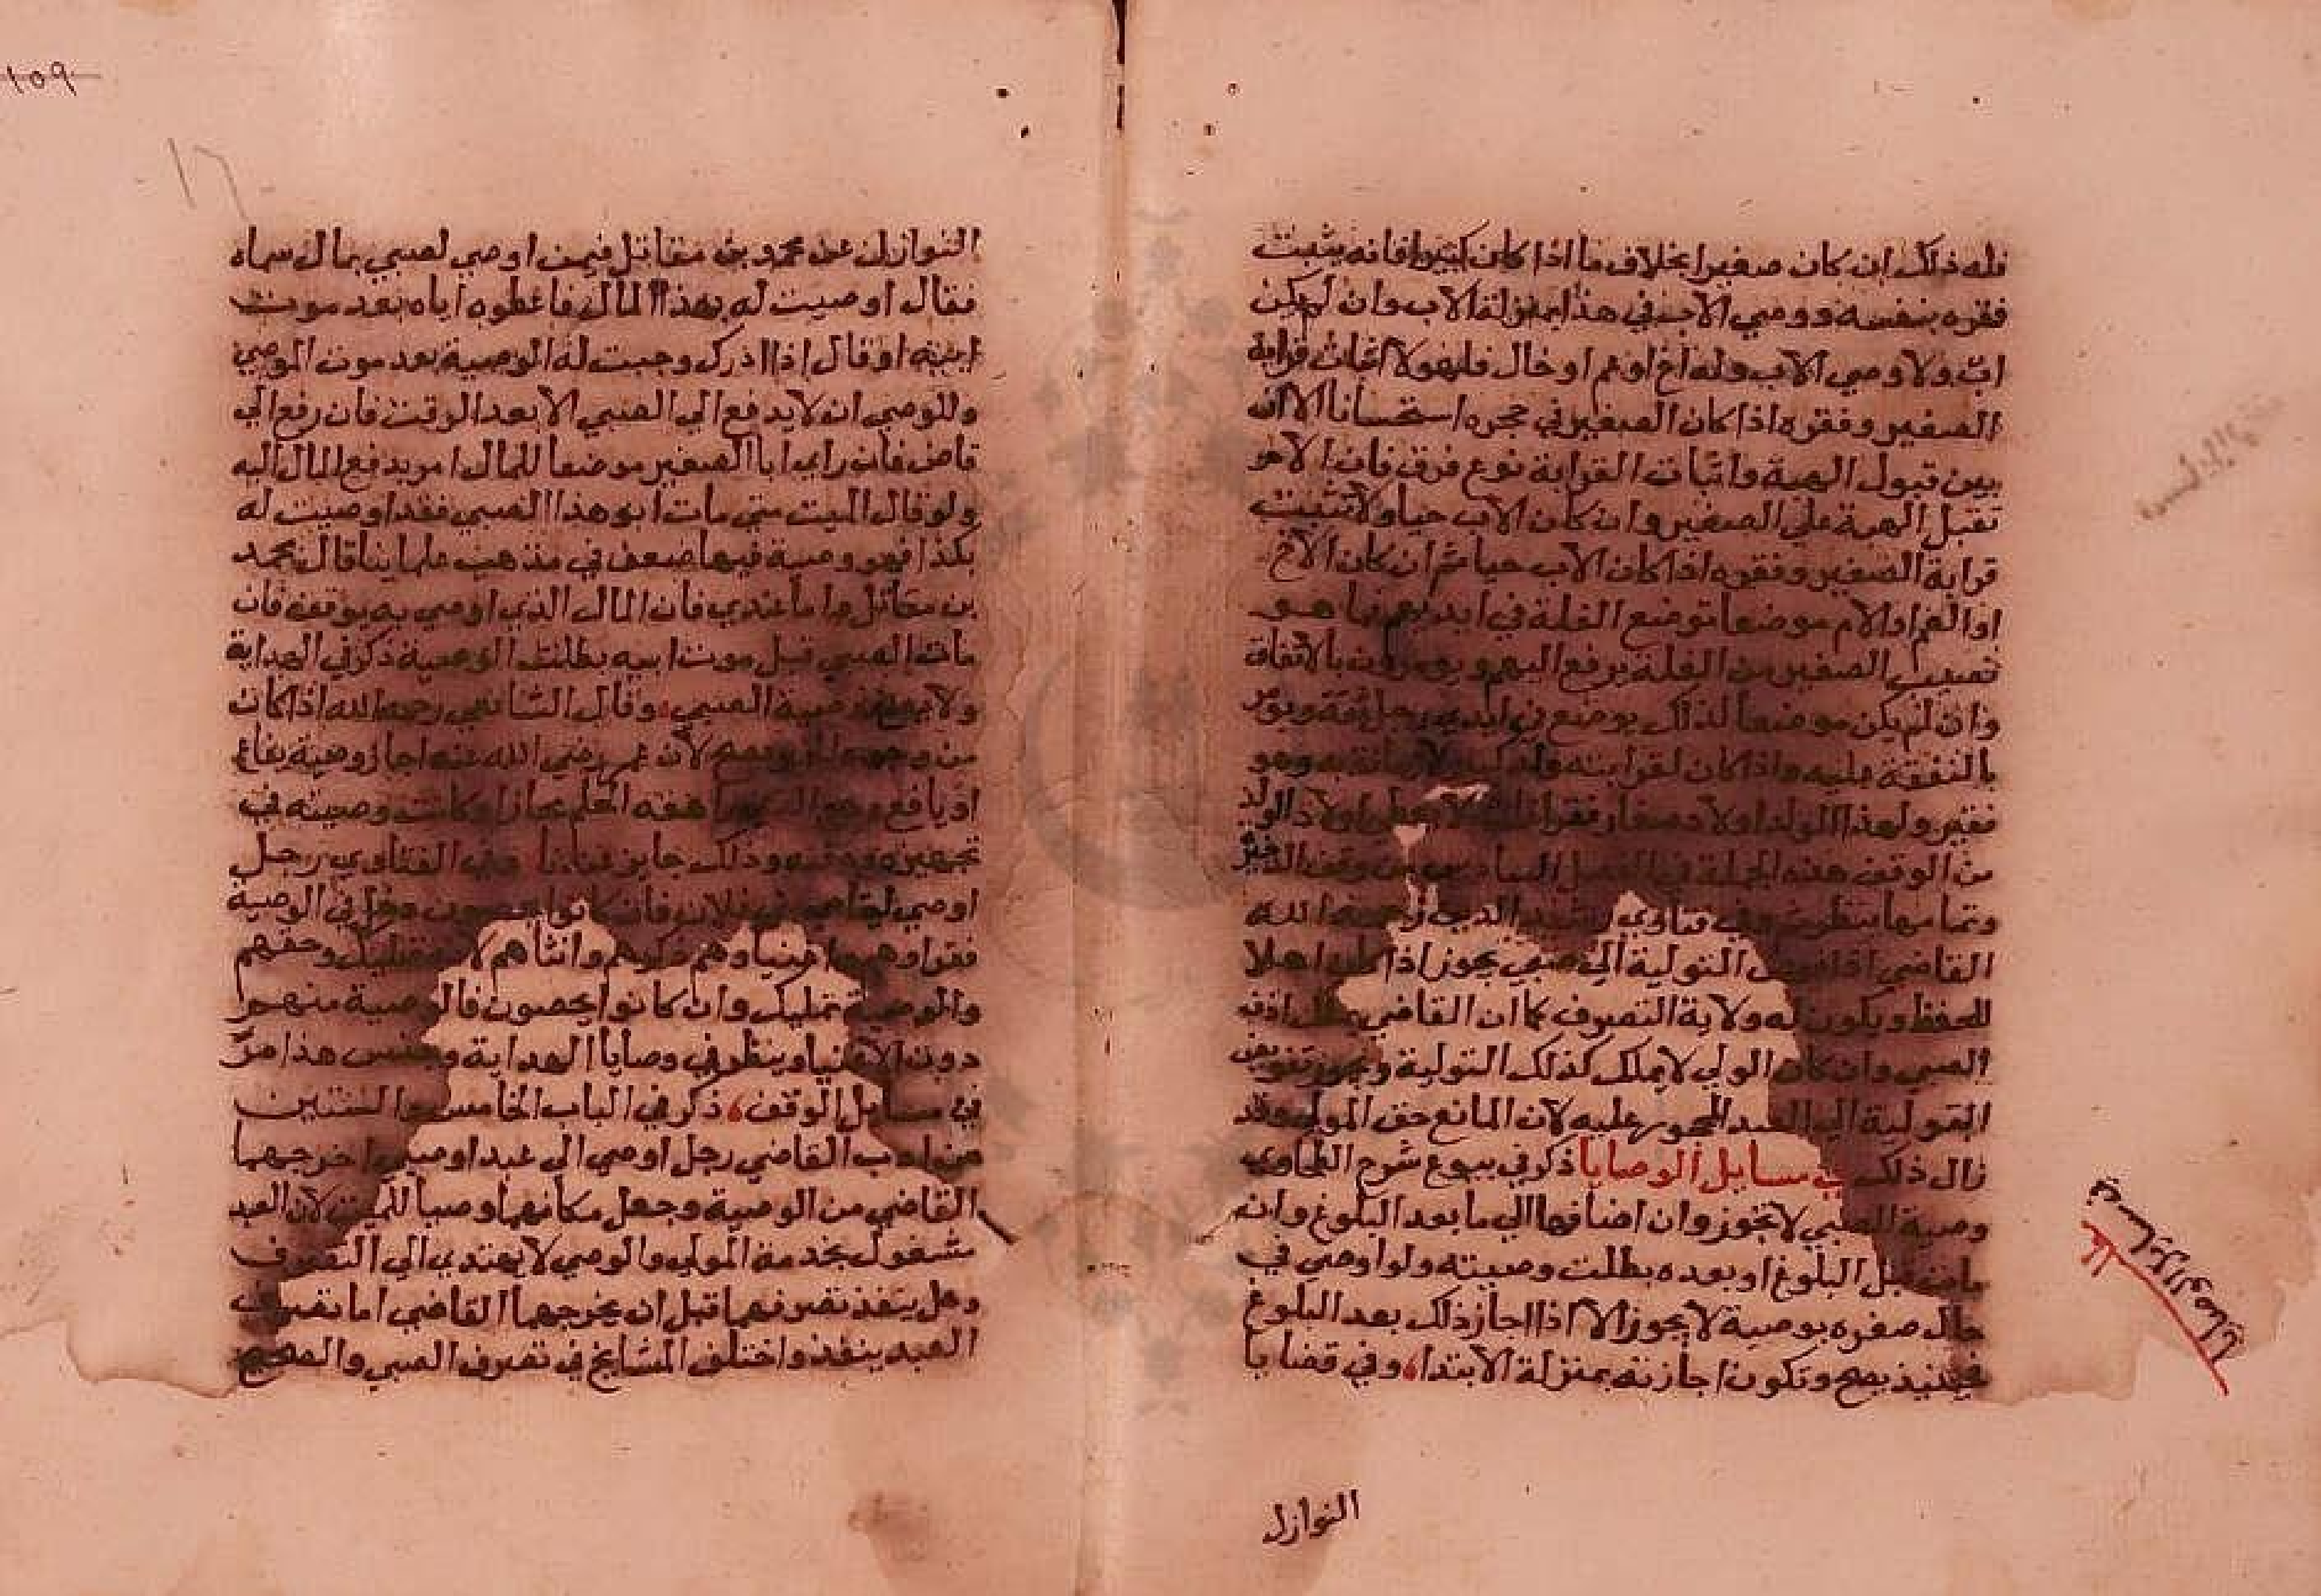 فله ذلك ان كان صغيرا بخلاف ما اذا كان كبيرا فانه يثبت
فقره بنفسه ووصي الاب في هذا بمنزلة الاب وان لم يكن
اب ولا وصي الاب وله اخ او عم او خال فلهولا اثبات قرابة
الصغير وفقره اذا كان الصغير في حجره استحسانا الا ان
بين قبول الهبة واثبات القرابة نوع فرق فان الام
تقبل الهبة علي الصغير وان كان الاب حيا ولا تثبت
قرابة الصغير وفقره اذا كان الاب حيا ثم ان كان الاخ
او العم او الام موضعا توضع الغلة في ايديهم فما هو
نصيب الصغير من الغلة يرفع اليهم ويومرون بالانفاق
وان لم يكن موضعا لذلك يوضع في ايدي رجل ثقة ويومر
بالنفقة عليه واذا كان لقرابته ولد وهو
فقير ولهذا الولد اولاد صغار فقرا اولاد الولد
من الوقف هذه الجملة في الفصل السادس من وقف الذخيرة
وتمامها ينظر في فتاوي رشيد الدين رحمه الله
القاضي اذا فوض التولية الي صبي يجوز اذا كان اهلا
للحفظ ويكون له ولاية التصرف كما ان القاضي يملك اذن
الصبي وان كان الولي لا يملك كذلك التولية ويجوز تفويض
التولية الي العبد المحجور عليه لان المانع حق المولي وقد
زال ذلك في مسايل الوصايا ذكر في بيوع شرح الطحاوي
وصية الصبي لا تجوز وان اضافها الي ما بعد البلوغ وان
مات قبل البلوغ او بعده بطلت وصيته ولو اوصي في
حال صغره بوصية لا يجوز الا اذا اجاز ذلك بعد البلوغ
فحينئذ يصح وتكون اجازته بمنزلة الابتداء وفي قضايا
النوازل
في مسايل الوصايا
١٥٩
النوازل عن محمد بن مقاتل فيمن اوصي لصبي بمال سماه
فقال اوصيت له بهذا المال فاعطوه اياه بعد موت
ابيه او قال اذا ادرك وجبت له الوصية بعد موت الموصي
وللوصي ان لا يدفع الي الصبي الا بعد الوقت فان رفع الي
قاض فان راي ابا الصغير موضعا للمال امر بدفع المال اليه
ولو قال الميت متي مات ابو هذا الصبي فقد اوصيت له
بكذا فهو وصية فيها ضعف في مذهب علماينا قال محمد
بن مقاتل واما عندي فان المال الذي اوصي به يوقف فان
مات الصبي قبل موت ابيه بطلت الوصية ذكر في الهداية
ولا يصح وصية الصبي وقال الشافعي رحمه الله اذا كان
من وجوه يصح لان عمر رضي الله عنه اجاز وصية يفاع
او يافع وهو الحلم مجازا وكانت وصيته في
تجهيزه ودفنه وذلك جايز عندنا وفي الفتاوي رجل
اوصي ليتامي بني فلان فان كانوا يحصون دخل في الوصية
فقراوهم واغنياوهم ذكرهم وانثاهم لانه تمليك وحقهم
والوصية تمليك وان كانوا يحصون فالوصية منهم
دون الاغنيا وينظر في وصايا الهداية وجنس هذا مر
في مسايل الوقف ذكر في الباب الخامس والستين
من ادب القاضي رجل اوصي الي عبد او صبي اخرجهما
القاضي من الوصية وجعل مكانهما وصيا للميت لان العبد
مشغول بخدمة المولي والوصي لا يهتدي الي التصرف
وهل ينفذ تصرفهما قبل ان يخرجهما القاضي اما تصرف
العبد ينفذ واختلف المشايخ في تصرف الصبي والصحيح